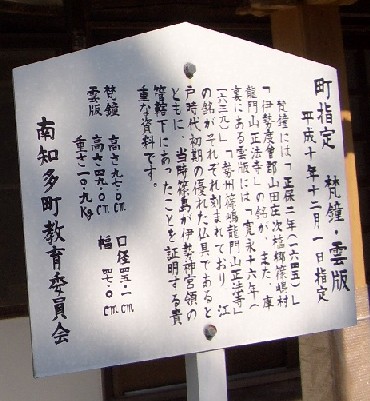 町指定　梵鐘・雲版
平成十年十二月一日指定
梵鐘には「正保二年（一六四五）」
「伊勢度会郡山田庄次福郷篠嶋村
龍門山正法寺」の銘が、また、庫
裏にある雲版には「寛永十六年（
一六三九）」「勢州篠嶋龍門山正法寺」
の銘がそれぞれ刻まれており、江
戸時代初期の優れた仏具であると
ともに、当時篠島が伊勢神宮領の
管轄下にあったことを証明する貴
重な資料です。
梵鐘　高さ九七・〇cm　口径四五・一cm
雲版　高さ四九・〇cm　幅　四七・〇cm
重さ一〇・九Kg
南知多町教育委員会